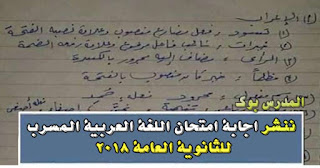 الإعراب
(١) تسود : فعل مضارع منصوب وعلامة نصبه الفتحة
(٢) خبرات : نائب فاعل مرفوع وعلامة رفعه الضمة
(٣) الرأى : مضاف إليه مجرور بالكسرة
(٤) مظلماً : خبر كان منصوب بالفتحة
المدرس بوك
ننشر اجابة امتحان اللغة العربية المسرب
للثانوية العامة ٢٠١٨